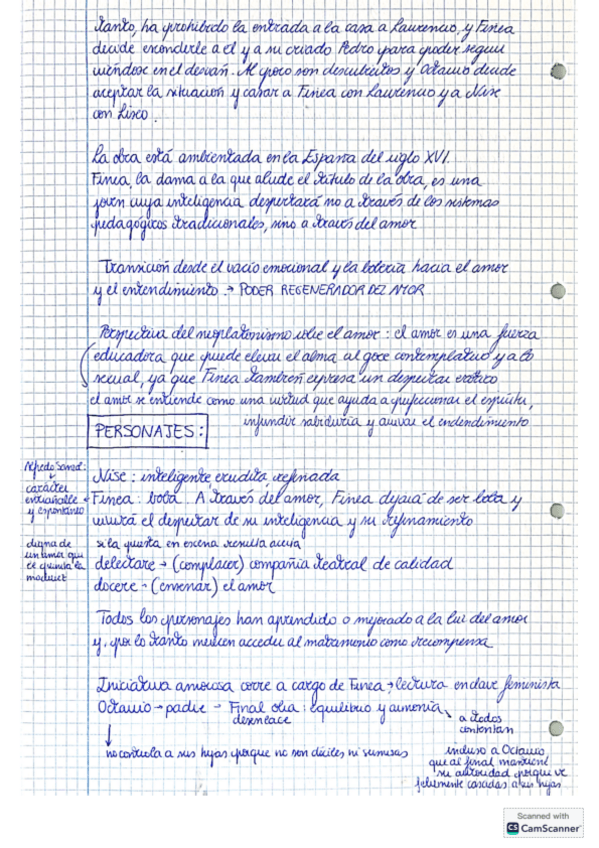 tanto, ha prohibido la entrada a la casa a Laurencio, y Finea
decide esconderle a el y a su criado Pedro para poder seguir
viéndose en el desván. Al poco son descubiertos y Octavio decide
aceptar la situación y casar a Finea con Laurencio y a Nise
con Liseo.
La obra está ambientada en la España del siglo XVI.
Finea, la dama a la que alude el título de la obra, es una
joven cuya inteligencia despertará no a través de los sistemas
pedagógicos tradicionales, sino a través del amor
Transición desde el vacío emocional y la bobería hacia el amor
y el entendimiento → PODER REGENERADOR DEL AMOR
Perspectiva del neoplatonismo sobre el amor: el amor es una fuerza
educadora que puede elevar el alma al goce contemplativo y a lo
sexual, ya que Finea también expresa un despertar erótico
el amor se entiende como una virtud que ayuda a perfeccionar el espíritu,
infundir sabiduría y avivar el entendimiento
PERSONAJES:
Alfredo
carácter
entrañable
y espontáneo
digna de
un amor que
Nise: inteligente erudita, refinada
Finea: boba. A través del amor, Finea dejará de ser boba y
vivirá el despertar de su inteligencia y su refinamiento
si la puesta en escena resulta
delectare → (complacer) compañía teatral de calidad
docere → (enseñar) el amor
Todos los personajes han aprendido o mejorado a la luz del amor
y, por lo tanto merecen acceder al matrimonio como recompensa
Iniciativa amorosa corre a cargo de Finea → lectura en clave feminista
Octavio → padre → Final obra: equilibrio y armonía
desenlace
a todos
contentan
no controla a sus hijas porque no son dóciles ni sumisas
incluso a Octavio
que al final mantiene
su autoridad porque ve
felizmente casadas a sus hijas
Scanned with
CS CamScanner